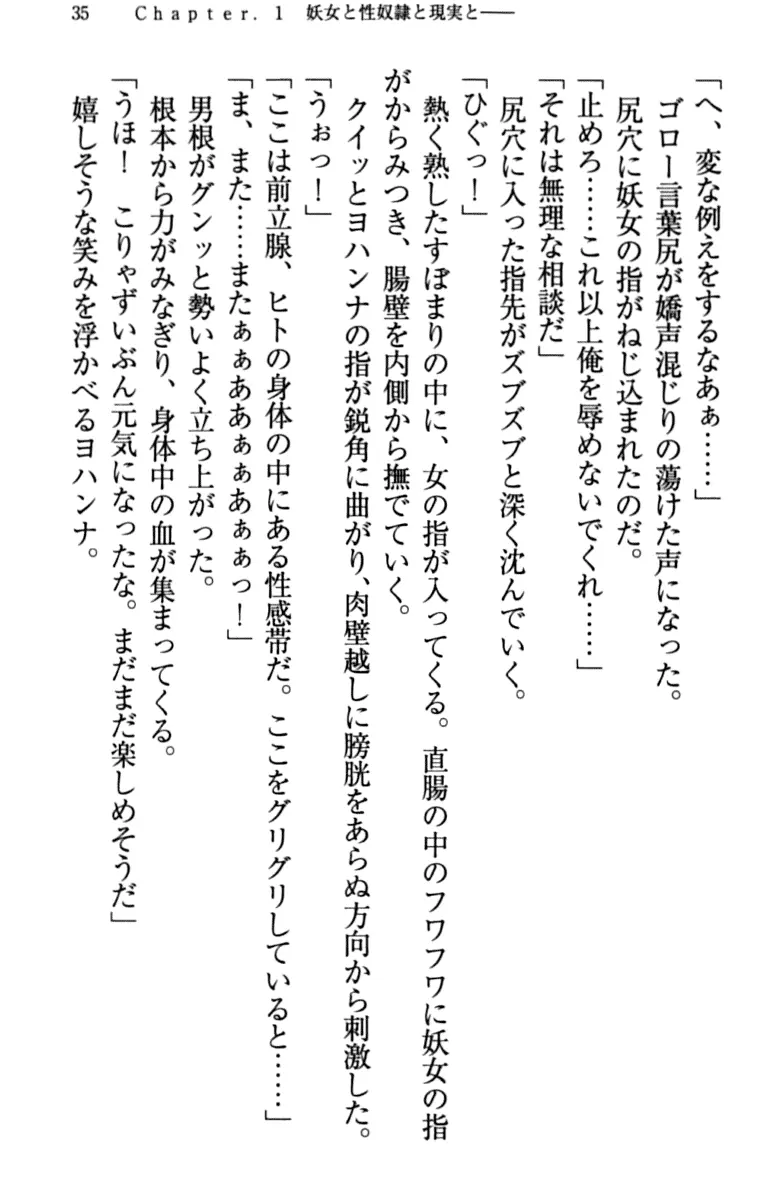 35　Chapter.1　妖女と性奴隷と現実と――
「へ、変な例えをするなあぁ……」
ゴロー言葉尻が嬌声混じりの蕩けた声になった。
尻穴に妖女の指がねじ込まれたのだ。
「止めろ……これ以上俺を辱めないでくれ……」
「それは無理な相談だ」
尻穴に入った指先がズブズブと深く沈んでいく。
「ひぐっ！」
熱く熟したすぼまりの中に、女の指が入ってくる。直腸の中のフワフワに妖女の指
がからみつき、腸壁を内側から撫でていく。
クイッとヨハンナの指が鋭角に曲がり、肉壁越しに膀胱をあらぬ方向から刺激した。
「うぉっ！」
「ここは前立腺、ヒトの身体の中にある性感帯だ。ここをグリグリしていると……」
「ま、また……またぁぁああぁぁあぁぁっ！」
男根がグンッと勢いよく立ち上がった。
根本から力がみなぎり、身体中の血が集まってくる。
「うほ！　こりゃずいぶん元気になったな。まだまだ楽しめそうだ」
嬉しそうな笑みを浮かべるヨハンナ。